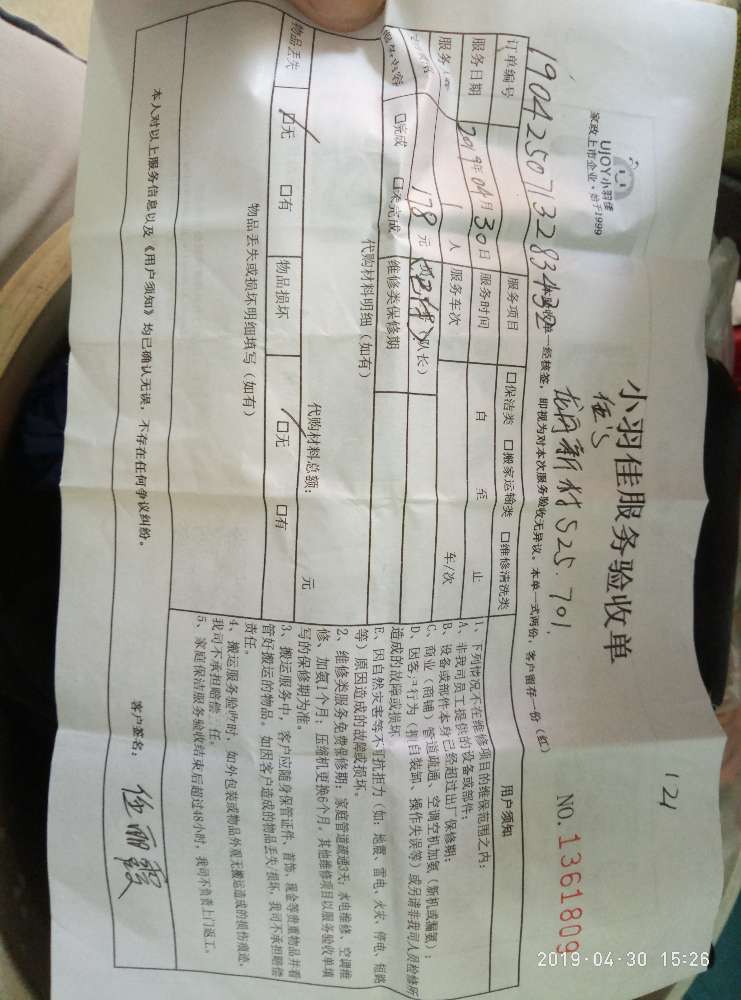 UJOY小羽佳
家政上市企业·始于1999
小羽佳服务验收单
121
NO.1361809
任's
龙舟新村525.701.
本验收单一经核签，即视为对本次服务验收无异议。本单一式两份，客户留存一份（红）
订单编号
19042507132834
服务项目 口保洁类 口搬家运输类 口维修清洗类
服务日期 2019年04月30日 服务时间 自 至 止
1人 服务车次 车/次
178元
（队长）
口完成 口未完成 维修类保修期
代购材料明细（如有）
代购材料总额： 元
物品丢失 口无 口有 物品损坏 口无 口有
物品丢失或损坏明细填写（如有）
用户须知
1、下列情况不在维修项目的维保范围之内：
A、非我司员工提供的设备或部件；
B、设备或部件本身已经超过出厂保修期；
C、商业（商铺）管道疏通、空调空机加氨（新机或漏氨）；
D、因客户行为（擅自装卸、操作失误等）或另请非我司人员检修所
造成的故障或损坏
E、因自然灾害等不可抗拒力（如：地震、雷电、火灾、停电、短路
等）原因造成的故障或损坏。
2、维修类服务免费保修期：家庭管道疏通3天；水电维修、空调维
修、加氨1个月；压缩机更换6个月。其他维修项目以服务验收单填
写的保修期为准。
3、搬运服务中，客户应随身保管证件、首饰、现金等贵重物品并看
管好搬运的物品。如因客户造成的物品丢失/损坏，我司不承担赔偿
责任。
4、搬运服务验收时，如外包装或物品外观无搬运造成的损伤痕迹，
我司不承担赔偿责任。
5、家庭保洁服务验收结束后超过48小时，我司不负责上门返工。
本人对以上服务信息以及《用户须知》均已确认无误，不存在任何争议纠纷。
客户签名：任丽霞
2019-04-30 15:26